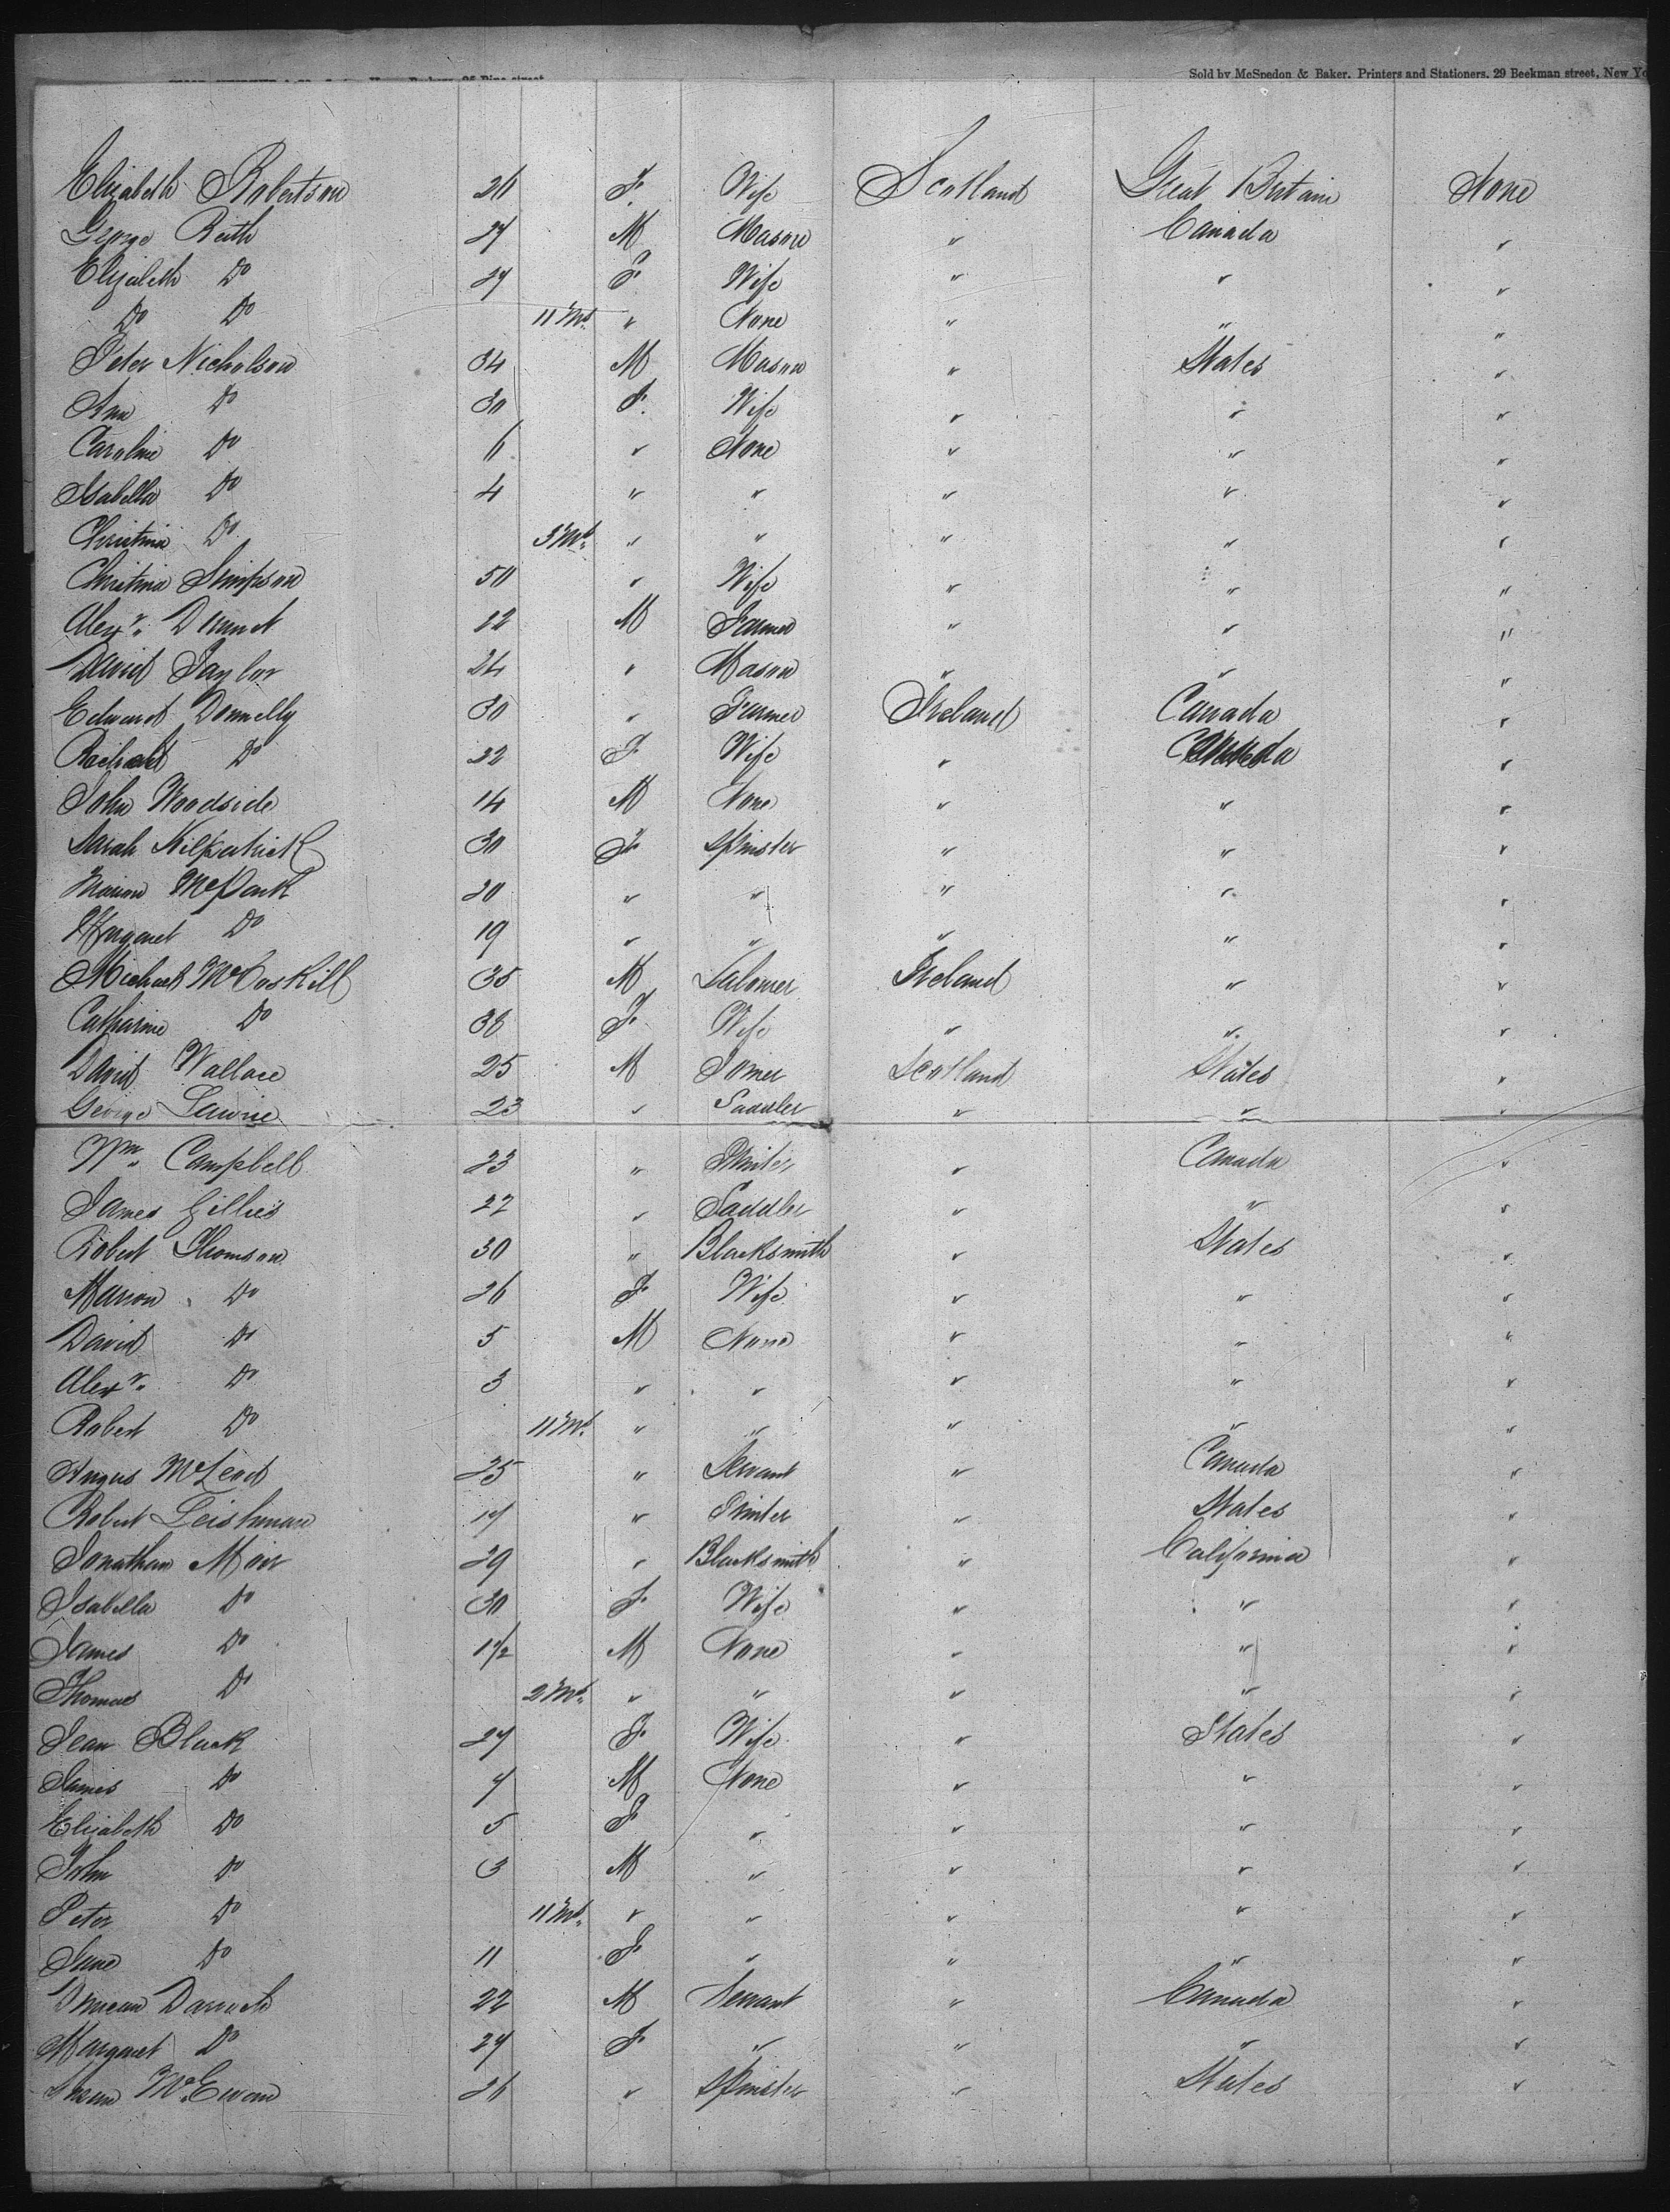 Sold by McSpedon & Baker. Printers and Stationers. 29 Beekman street, New Yo
Elizabeth Robertson 26 F. Wife Scotland Great Britain None
George Reith 27 M Mason " Canada "
Elizabeth Do 27 F. Wife " " "
Do Do 11 Ms. " None " " "
Peter Nicholson 34 M Mason " States "
Ann Do 30 F. Wife " " "
Caroline Do 6 " None " " "
Isabella Do 4 " " " " "
Christina Do 3 Ms. " " " " "
Christina Simpson 50 " Wife " " "
Alexr. M Farmer " " "
David Taylor 24 " Mason " " "
Edward Donnelly 30 " Farmer Ireland Canada "
Do 22 F Wife " Canada "
John Woodside 14 M None " " "
Sarah Kilpatrick 30 F. Spinster " " "
Marion McPark 20 " " " " "
Margaret Do 19 " " " " "
Michael McCaskill 35 M Laborer Ireland " "
Catharine Do 38 F. Wife " " "
David Wallace 25 M Joiner Scotland States "
George Lawrie 23 " Saddler " " "
Wm. Campbell 23 " Printer " Canada "
James Gillies 22 " Saddler " " "
Robert Thomson 30 " Blacksmith " States "
Marion Do 26 F. Wife " " "
David Do 5 M None " " "
Alexr. Do 3 " " " " "
Robert Do 11 Ms. " " " " "
Angus McLeod 25 " Servant " Canada "
Robert Leishman 17 " Printer " States "
Jonathan Moir 29 " Blacksmith " California "
Isabella Do 30 F. Wife " " "
James Do 1 1/2 M None " " "
Thomas Do 2 Ms. " " " " "
Jean Black 27 F. Wife " States "
James Do 7 M None " " "
Elizabeth Do 5 F " " " "
John Do 3 M " " " "
Peter Do 11 Ms. " " " " "
Jane Do 11 F. " " " "
Duncan Darroch 22 M Servant " Canada "
Margaret Do 27 F. " " " "
McEwan 26 " Spinster " States "